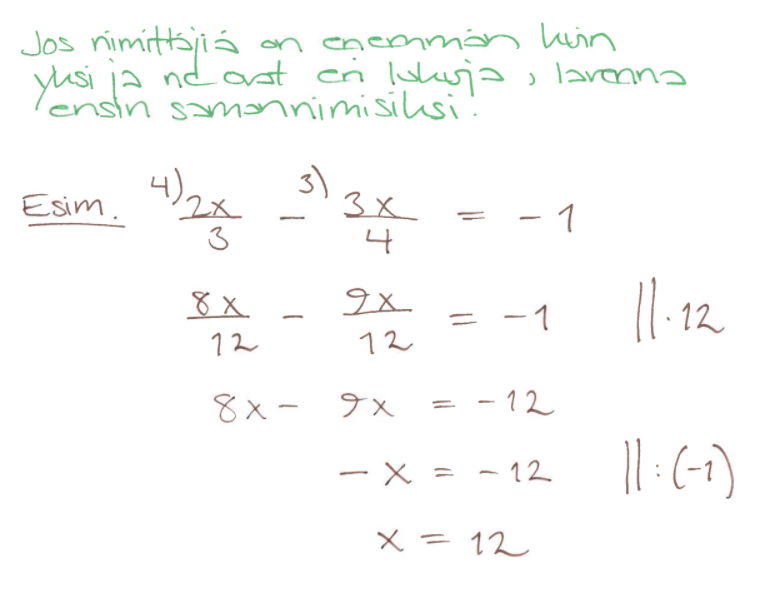 Jos nimittäjiä on enemmän kuin
yksi ja ne ovat eri lukuja, lavenna
ensin samannimisiksi.
Esim. 4) 2x/3 - 3) 3x/4 = -1
8x/12 - 9x/12 = -1 ||·12
8x - 9x = -12
-x = -12 ||:(-1)
x = 12